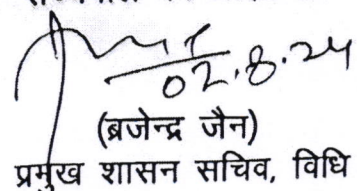 02.8.24
(ब्रजेन्द्र जैन)
प्रमुख शासन सचिव, विधि